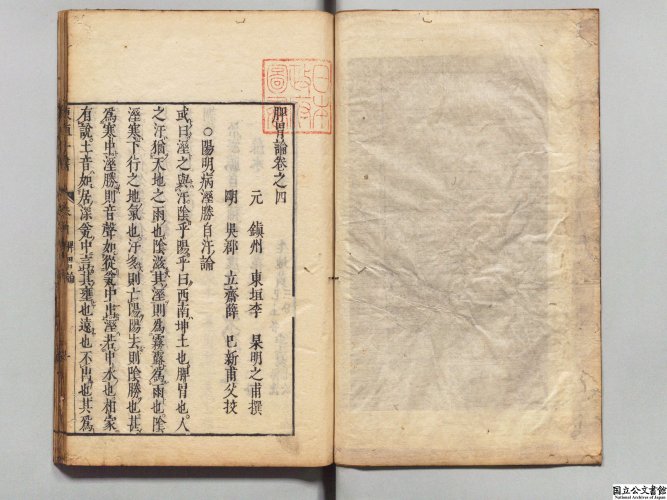 脾胃論卷之四
元 鎭州 東垣李 杲明之甫撰
明 吳郡 立齋薛 己新甫父校
○陽明病溼勝自汗論
或曰溼之與汗陰乎陽乎曰西南坤土也脾胃也人
之汗猶天地之雨也陰滋其溼則爲霧露爲雨也陰
溼寒下行之地氣也汗多則亡陽陽去則陰勝也甚
爲寒中溼勝則音聲如從甕中出溼若中水也相家
有說土音如居深甕中言其壅也遠也不出也其爲
日本
政府
圖書
国立公文書館
National Archives of Japan